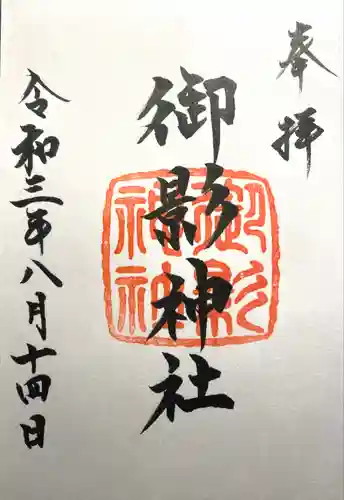 奉拝
御影神社
御影
神社
令和三年八月十四日